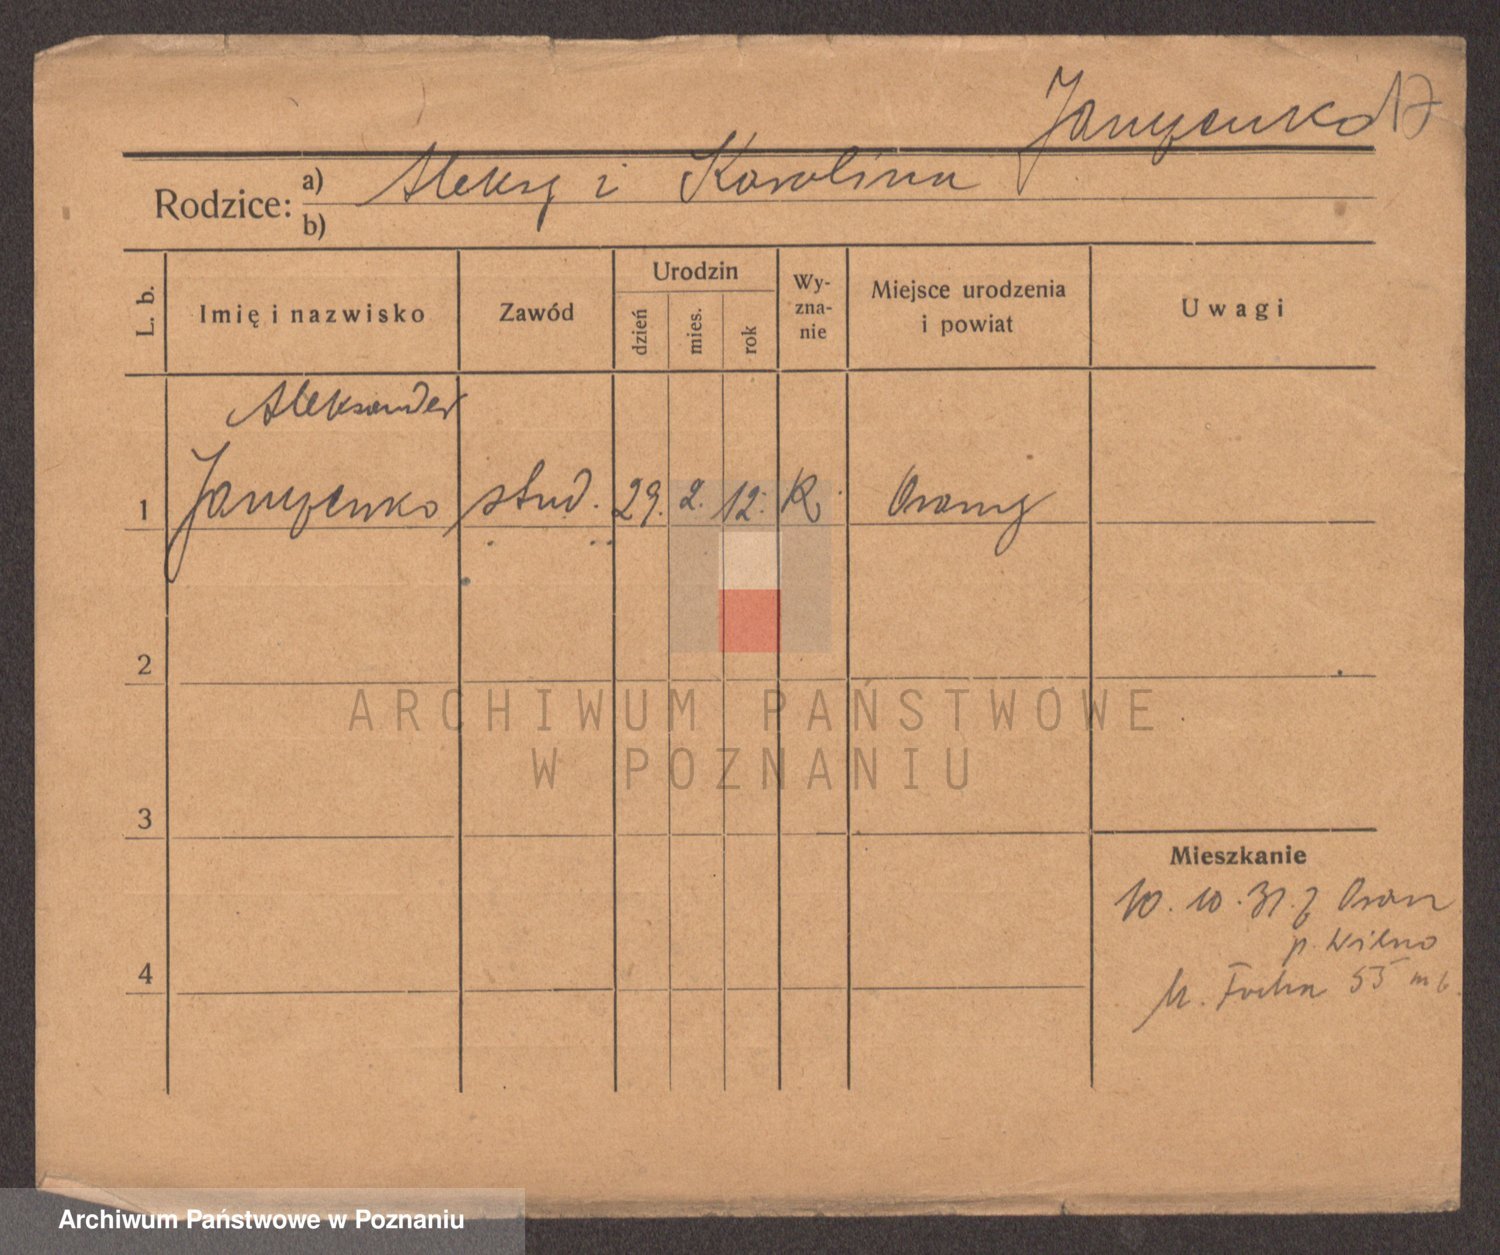 17
Rodzice: a) Aleksy i Karolina
b)
L. b.
Imię i nazwisko
Zawód
Urodzin
dzień
mies.
rok
Wy-
zna-
nie
Miejsce urodzenia
i powiat
Uwagi
Aleksander
1 stud. 29. 2. 12. R. Orany
2
3
4
ARCHIWUM PAŃSTWOWE
W POZNANIU
Mieszkanie
10. 10. 31. z Oran
p. Wilno
Focha 55 m 6.
Archiwum Państwowe w Poznaniu